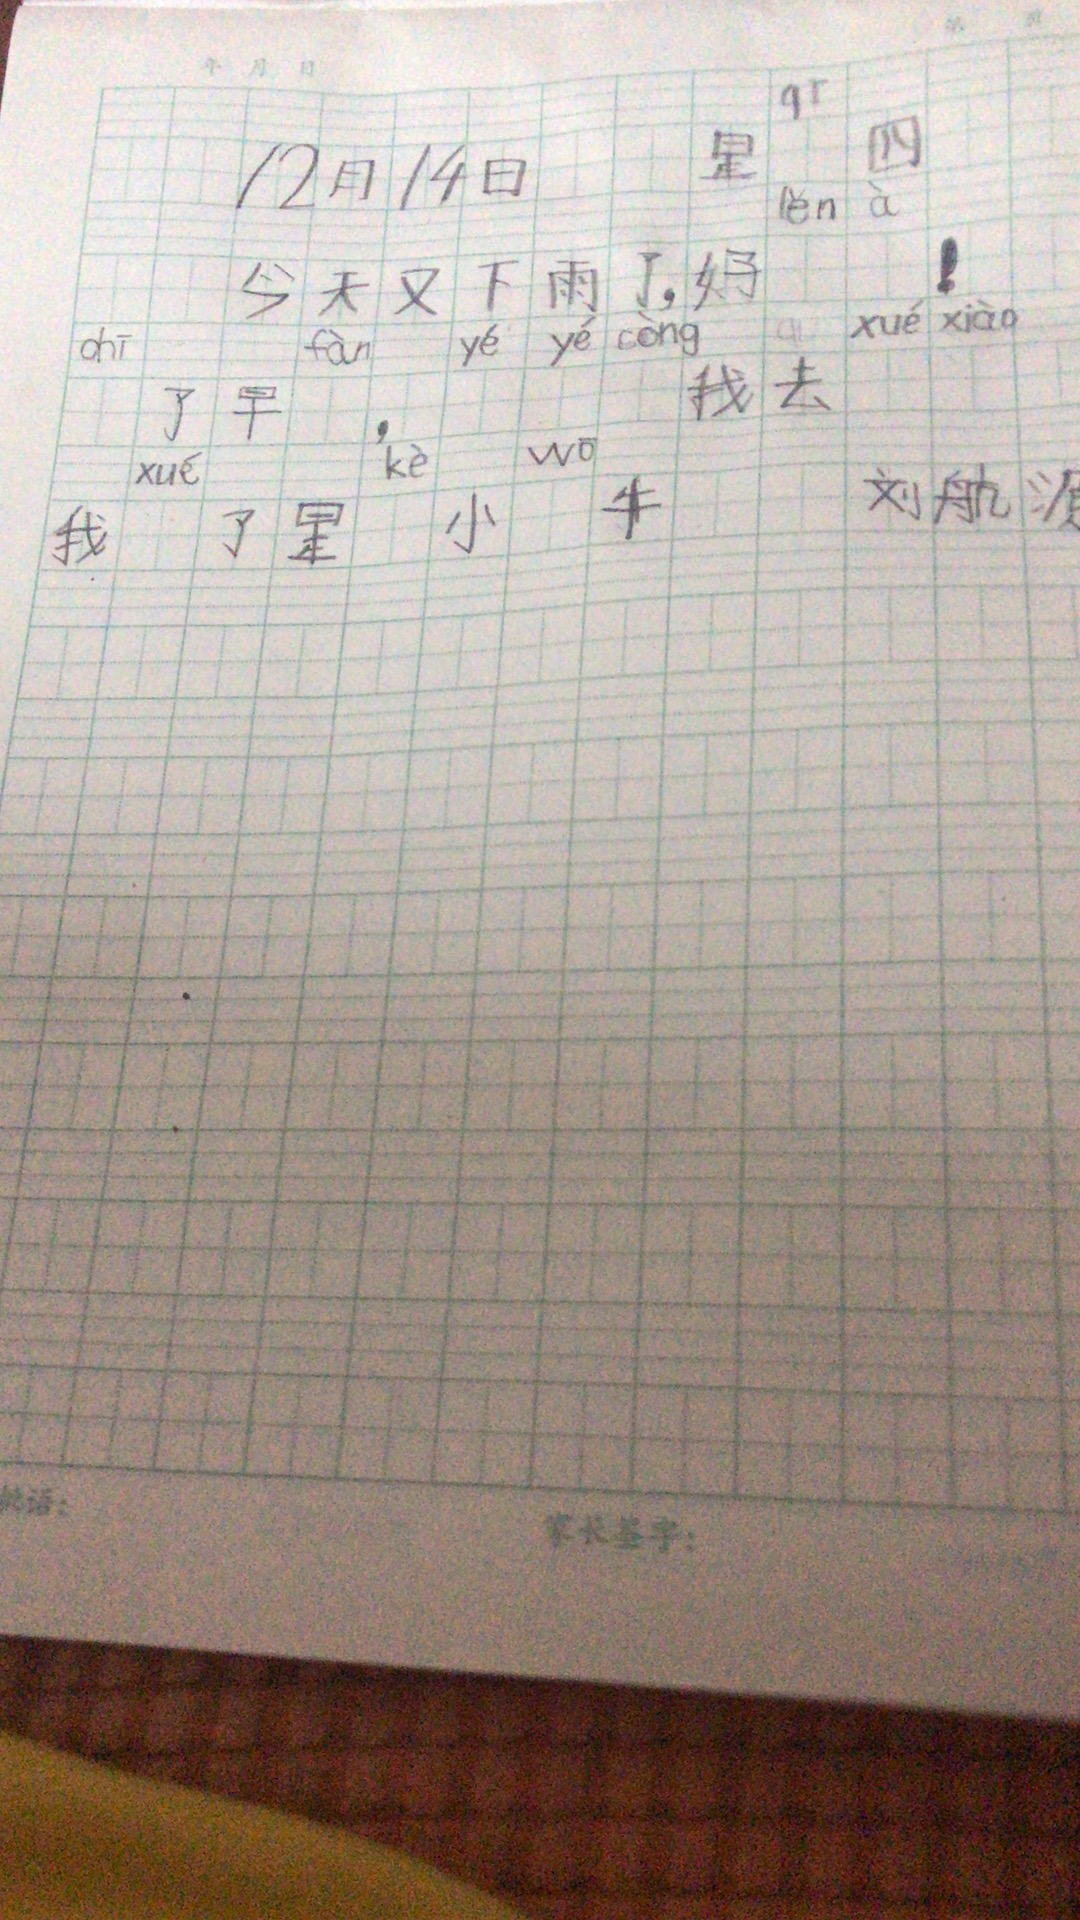 年 月 日
12月14日 星 qī 四
今天又下雨了,好 lěn à !
chī 了早 fàn , yé yé còng 我去 xué xiào
我 xué 了星 kè 小 wō 牛 刘航源
批语:
家长签字: